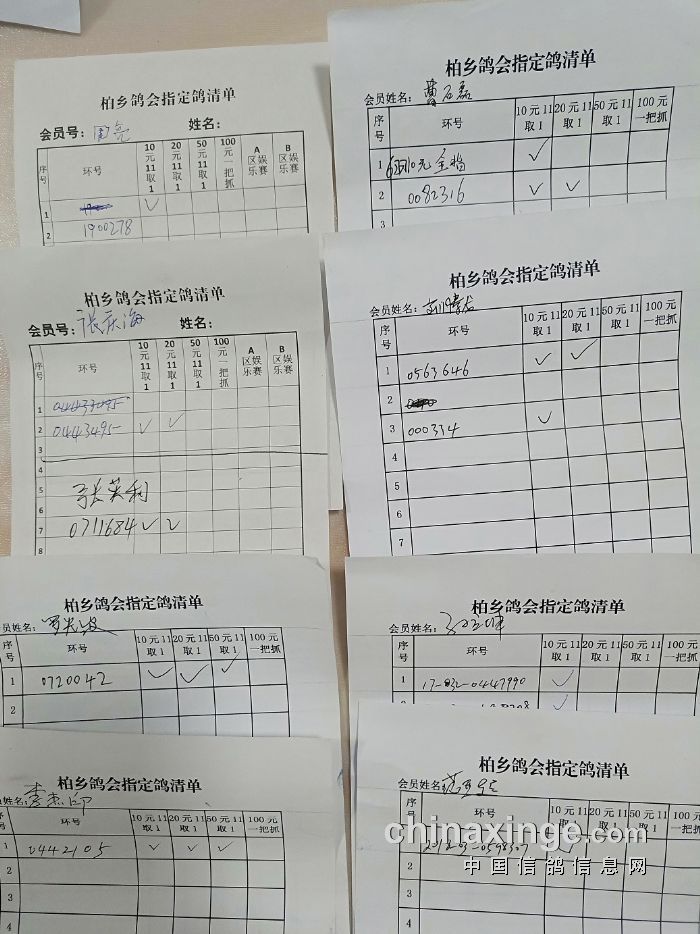 柏乡鸽会指定鸽清单
会员号： 周亮 姓名：
序号 环号 10元11取1 20元11取1 50元11取1 100元一把抓 A区娱乐赛 B区娱乐赛
1 ✓
2 1900278
柏乡鸽会指定鸽清单
会员姓名：
序号 环号 10元11取1 20元11取1 50元11取1 100元一把抓
1 10元全指 ✓
2 0082316 ✓ ✓
3
柏乡鸽会指定鸽清单
会员号： 张庆海 姓名：
序号 环号 10元11取1 20元11取1 50元11取1 100元一把抓 A区娱乐赛 B区娱乐赛
1 0443495
2 0443495 ✓ ✓
3
5 张英利
6
7 0711684 ✓ ✓
8
柏乡鸽会指定鸽清单
会员姓名：
序号 环号 10元11取1 20元11取1 50元11取1 100元一把抓
1 0563646 ✓ ✓
2
3 000334 ✓
4
5
6
7
柏乡鸽会指定鸽清单
员姓名：
序号 环号 10元11取1 20元11取1 50元11取1 100元一把抓
1 0720042 ✓ ✓ ✓
2
柏乡鸽会指定鸽清单
会员姓名：
序号 环号 10元11取1 20元11取1 50元11取1 100元一把抓
1 17-032-0447990 ✓
柏乡鸽会指定鸽清单
员姓名：
序号 环号 10元11取1 20元11取1 50元11取1 100元一把抓
1 0442105 ✓ ✓ ✓
2
3
4
柏乡鸽会指定鸽清单
会员姓名
序号 环号 10元11取1 20元11取1 50元11取1 100元一把抓
2
3
4
chinaxinge.com
中国信鸽信息网